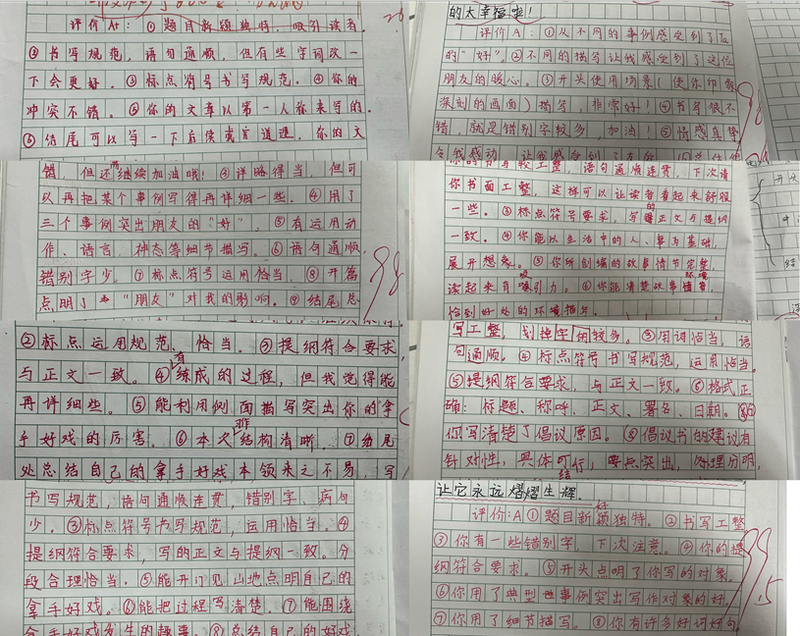 评价A+：①题目新颖独特，吸引读者。
②书写规范，语句通顺，但有些字词改一
下会更好。③标点符号书写规范。④你的
冲突不错。⑤你的文章以第一人称来写的。
⑥结尾可以写一下后续或者道理，你的文
错，但还需继续加油哦！③详略得当，但可
以再把某个事例写得再详细一些。④用了
三个事例突出朋友的“好”。⑤有运用动
作、语言、神态等细节描写。⑥语句通顺，
错别字少。⑦标点符号运用恰当，⑧开篇
点明了“朋友”对我的影响。⑨结尾总
98
②标点运用规范、恰当。③提纲符合要求
与正文一致。④有练成的过程，但我觉得能
再详细些。⑤能利用侧面描写突出你的拿
手好戏的厉害。⑥本次结构清晰。⑦结尾
处总结自己的拿手好戏本领来之不易，写
书写规范，语句通顺连贯，错别字、病句
少。③标点符号书写规范，运用恰当。④
提纲符合要求，写的正文与提纲一致。分
段合理恰当。⑤能开门见山地点明自己的
拿手好戏。⑥能把过程写清楚。⑦能围绕
拿手好戏发生的趣事。⑧总结自己的好戏
的太幸福啦！
评价A：①从不同的事例感受到了友
的“好”。②不同的描写让我感受到了这位
朋友的暖心。③开头使用场景（使你印象
深刻的画面）描写，非常好！④书写很不
错，就是错别字较多，加油！⑤情感真挚
令我感动，让我感受到了
98
语句通顺连贯，下次请
你书面工整，这样可以让读者看起来舒服
一些。③标点符号要求，写的正文与提纲
一致。④你能以生活中的人、事为基础，
展开想象。⑤你所创编的故事情节完整，
读起来有吸引力。⑥你能清楚故事情节
恰到好处的环境描写。
写工整，划掉字的较多。③用词恰当，语
句通顺。④标点符号书写规范，运用恰当。
⑤提纲符合要求，与正文一致。⑥格式正
确：标题、称呼、正文、署名、日期。⑦
你写清楚了倡议原因。⑧倡议书的建议有
针对性，具体可行，要点突出，条理分明，
让它永远熠熠生辉。
评价：A①题目新颖独特。②书写工整
③你有一些错别字，下次注意。④你的提
纲符合要求。⑤开头点明了你写的对象。
⑥你用了典型事例突出写作对象的好。
⑦你用了细节描写。⑧你有许多好词好句
99.5